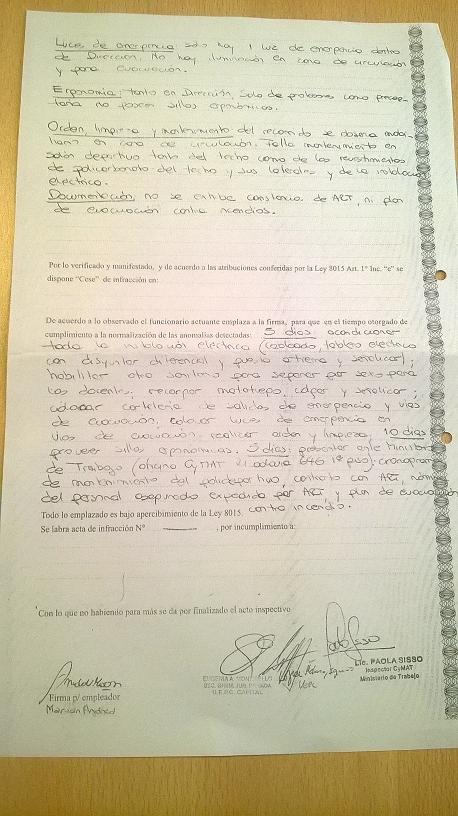 Luces de emergencia: solo hay 1 luz de emergencia dentro
de Dirección. No hay iluminación en zona de circulación
y para evacuación.
Ergonomía: tanto en Dirección, Sala de profesores como
no poseen sillas ergonómicas.
Orden, limpieza y mantenimiento del recorrido se observa
en zona de circulación. Falta mantenimiento en
salón deportivo tanto del techo como de los revestimientos
de policarbonato del techo y sus laterales y de la instalación
eléctrica.
Documentación, no se exhibe constancia de ART, ni plan
de evacuación contra incendios.
Por lo verificado y manifestado, y de acuerdo a las atribuciones conferidas por la Ley 8015 Art. 1º Inc. "e" se
dispone "Cese" de infracción en:
De acuerdo a lo observado el funcionario actuante emplaza a la firma, para que en el tiempo otorgado de
cumplimiento a la normalización de las anomalías detectadas: 5 días: acondicionar
toda la instalación eléctrica (cableado, tablero eléctrico
con disyuntor diferencial y puesta a tierra y señalizar);
habilitar otro sanitario para separar por sexo para
los docentes; recargar matafuego, colgar y señalizar;
colocar cartelería de salidas de emergencia y vías
de evacuación, colocar luces de emergencia en
vías de evacuación; realizar orden y limpieza. 10 días
proveer sillas ergonómicas. 5 días: presentar ante Ministerio
de Trabajo (oficina CyMAT 1º piso): cronograma
de mantenimiento del polideportivo, contrato con ART, nómina
del personal asegurado expedido por ART, y plan de evacuación
contra incendio.
Todo lo emplazado es bajo apercibimiento de la Ley 8015.
Se labra acta de infracción Nº ______ , por incumplimiento a:
Con lo que no habiendo para más se da por finalizado el acto inspectivo
Lic. PAOLA SISSO
Inspector CyMAT
Ministerio de Trabajo
EUGENIA A.
U.E.P.C. CAPITAL
Firma p/ empleador